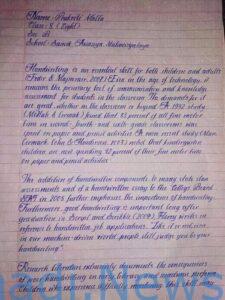 Name: Prakriti Malla
Class: 8 (Eight)
Sec: B
School: Sainik Awasiya Mahavidyalaya
Handwriting is an essential skill for both children and adults
(Feder & Majnemer, 2007). Even in the age of technology, it
remains the primary tool of communication and knowledge
assessment for students in the classroom. The demands for it
are great, whether in the classroom or beyond. A 1992 study
(McHale & Cermak) found that 85 percent of all fine motor
time in second, fourth and sixth grade classrooms was
spent on paper and pencil activities. A more recent study (Marr,
Cermak, Cohn & Henderson, 2003) noted that kindergarten
children are now spending 42 percent of their fine motor time
on paper and pencil activities.
The addition of handwritten components to many state class
assessments and of a handwritten essay to the College Board
SAT in 2005 further emphasises the importance of handwriting.
Furthermore, good handwriting is important long after
graduation. In Script and Scribble (2009), Florey writes in
reference to handwritten job applications: Like it or not, even
in our machine-driven world, people still judge you by your
handwriting."
Research literature extensively documents the consequences
of poor handwriting on early literacy and academic performance.
Children who experience difficulty mastering this skill may